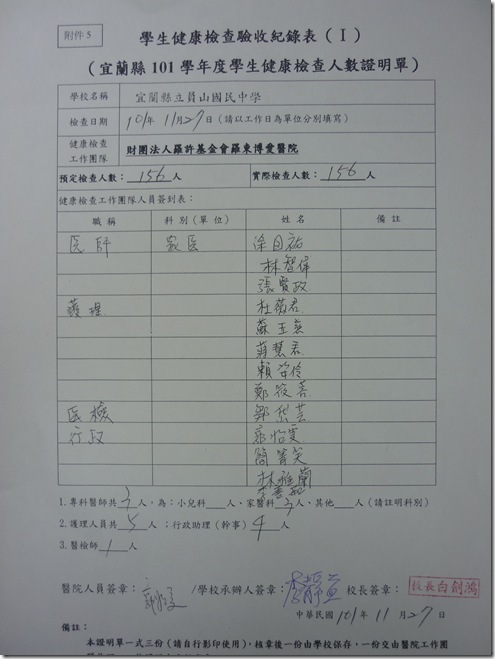 附件 5
學生健康檢查驗收紀錄表（Ⅰ）
（宜蘭縣 101 學年度學生健康檢查人數證明單）
學校名稱 宜蘭縣立員山國民中學
檢查日期 101年 11月27日（請以工作日為單位分別填寫）
健康檢查工作團隊 財團法人羅許基金會羅東博愛醫院
預定檢查人數：156人 實際檢查人數：156人
健康檢查工作團隊人員簽到表：
職稱 科別（單位） 姓名 備註
医師 家医 涂
林智偉
張賢政
護理 杜薇君
蘇玉
蔣慧君
賴
鄭筱
医檢 鄒岱芸
行政 怡雯
簡菁
林雅蘭
1.專科醫師共3人，為：小兒科 人、家醫科3人、其他 人（請註明科別）
2.護理人員共5人；行政助理（幹事）4人
3.醫檢師1人
醫院人員簽章： /學校承辦人簽章： 校長簽章： 校長白劍鴻
中華民國 101年 11月27日
備註：
本證明單一式三份（請自行影印使用），核章後一份由學校保存，一份交由醫院工作團